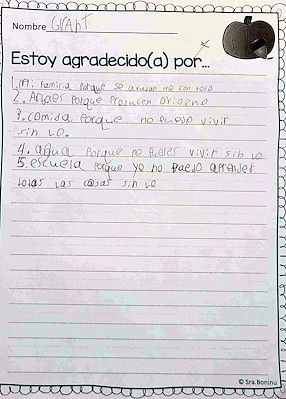 Nombre GrANT
Estoy agradecido(a) por...
1. mi familia porque se ayudan me con todo
2. Arboles Porque Producen oxigeno
3. comida Porque no puedo vivir
sin lo.
4. agua Porque no Puedes vivir sin lo
5. escuela Porque yo no Puedo aprender
todas las cosas sin lo
© Sra.Boninu